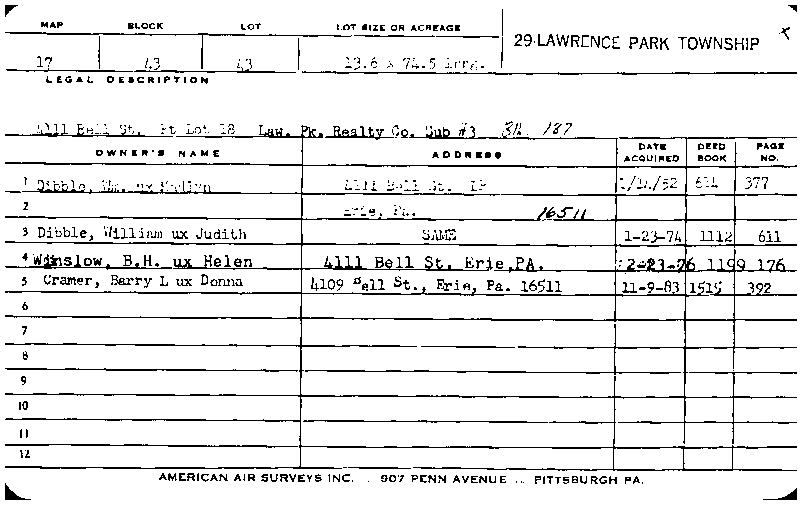 MAP BLOCK LOT LOT SIZE OR ACREAGE 29-LAWRENCE PARK TOWNSHIP
17 43 43 13.6 x 74.5 irrg.
LEGAL DESCRIPTION
4111 Bell St. Pt Lot 18 Law. Pk. Realty Co. Sub #3 187
OWNER'S NAME ADDRESS DATE ACQUIRED DEED BOOK PAGE NO.
1 Dibble, Wm. ux 4111 Bell St. LP 614 377
2 Erie, Pa. 16511
3 Dibble, William ux Judith SAME 1-23-74 1112 611
4 Winslow, B.H. ux Helen 4111 Bell St. Erie,PA. 2-23-76 1199 176
5 Cramer, Barry L ux Donna 4109 Bell St., Erie, Pa. 16511 11-9-83 1515 392
6
7
8
9
10
11
12
AMERICAN AIR SURVEYS INC. .. 907 PENN AVENUE .. PITTSBURGH PA.